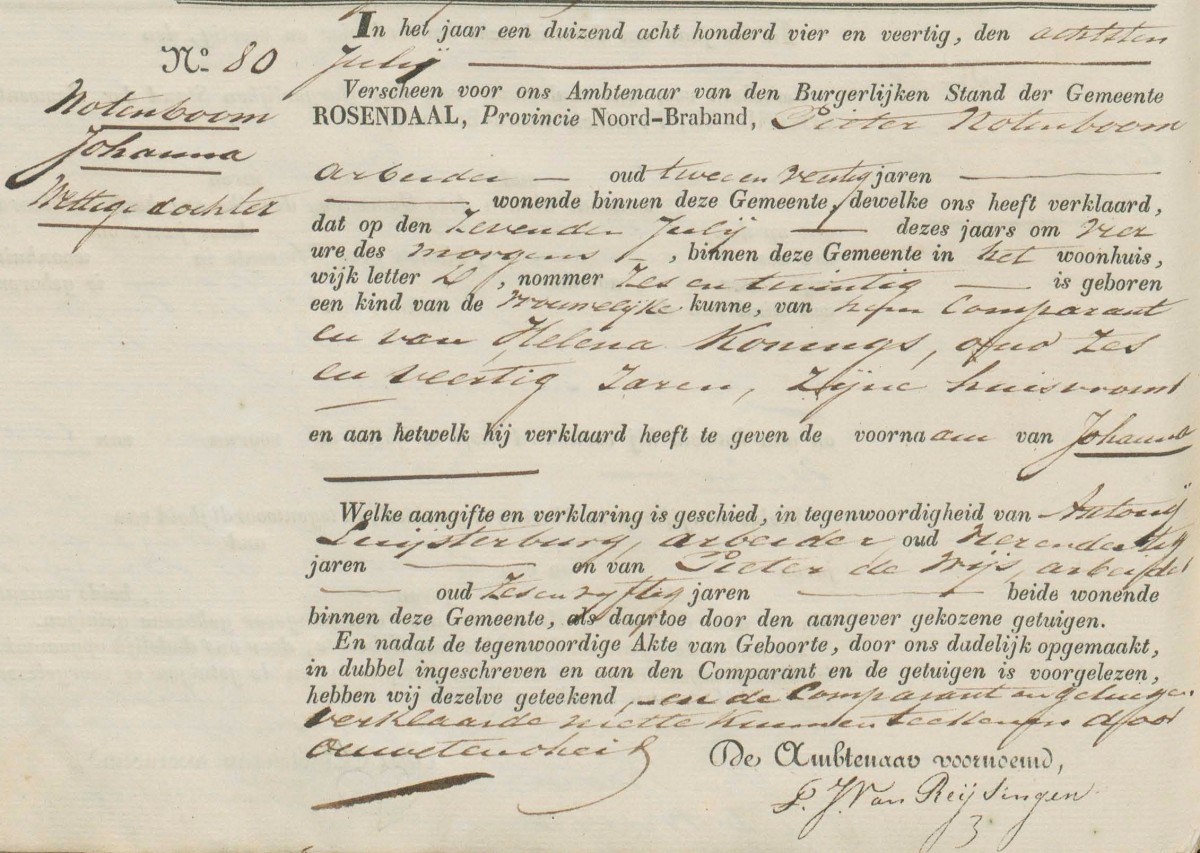 In het jaar een duizend acht honderd vier en veertig, den achtsten
No 80
Julij
Notenboom
Johanna
Wettige dochter
Verscheen voor ons Ambtenaar van den Burgerlijken Stand der Gemeente
ROSENDAAL, Provincie Noord-Braband, Pieter Notenboom
arbeider — oud twee en veertig jaren —
— wonende binnen deze Gemeente, dewelke ons heeft verklaard,
dat op den Zevenden Julij — dezes jaars om vier
ure des morgens —, binnen deze Gemeente in het woonhuis,
wijk letter D, nommer Zes en twintig — is geboren
een kind van de vrouwelijke kunne, van hem Comparant
en van Helena Konings, oud Zes
en veertig Jaren, Zijne huisvrouw
—
en aan hetwelk hij verklaard heeft te geven de voornaam van Johanna
—
Welke aangifte en verklaring is geschied, in tegenwoordigheid van Antonij
Luijsterburg, arbeider oud vierendertig
jaren — en van Pieter de Wijs, arbeider
— oud Zesenvyftig jaren — beide wonende
binnen deze Gemeente, als daartoe door den aangever gekozene getuigen.
En nadat de tegenwoordige Akte van Geboorte, door ons dadelijk opgemaakt,
in dubbel ingeschreven en aan den Comparant en de getuigen is voorgelezen,
hebben wij dezelve geteekend, en de Comparant en getuigen
verklaarde niet te kunnen teekenen door
onwetenheid
De Ambtenaar voornoemd,
F. J. Van Reijsingen